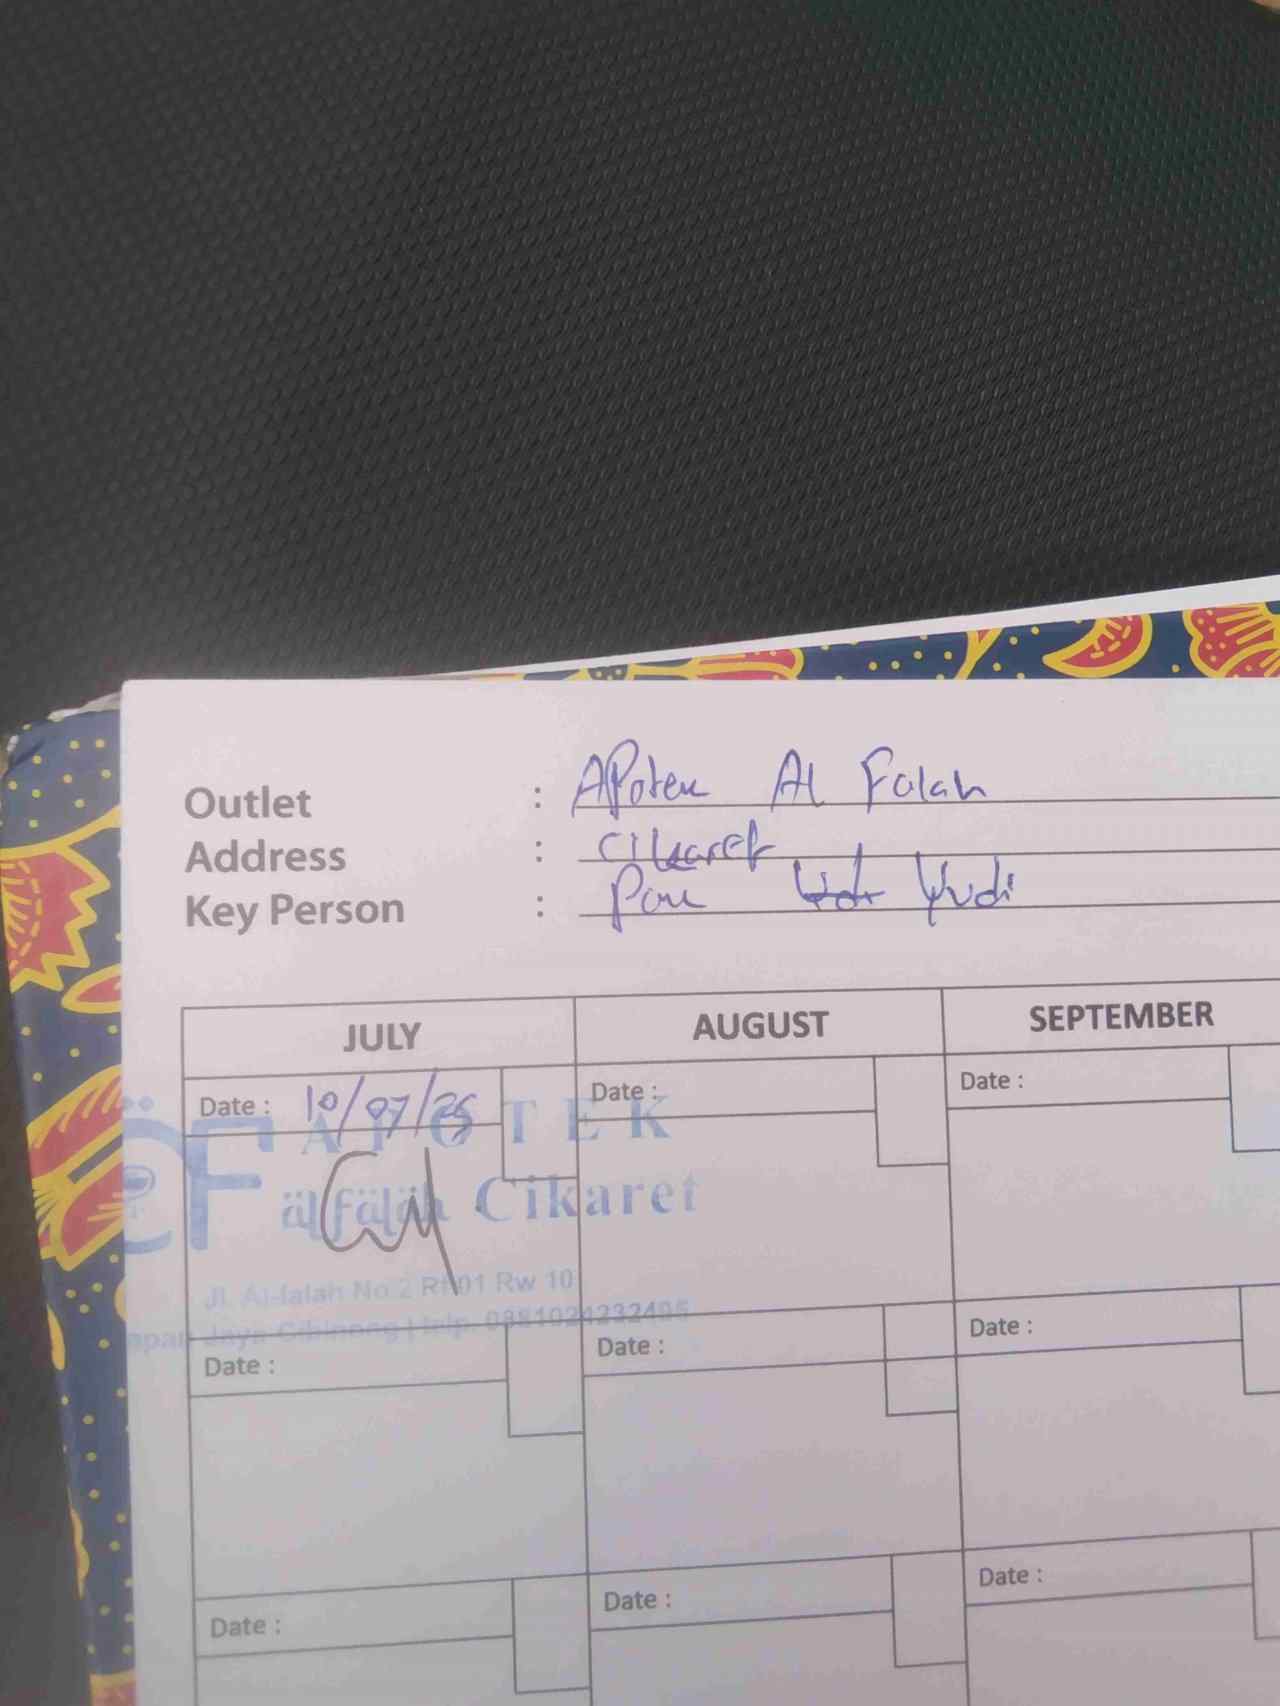 Outlet : APotek Al Falah
Address : Cikaret
Key Person : Pak Yudi
JULY AUGUST SEPTEMBER
Date : 10/07/25 Date : Date :
APOTEK
älfäläh Cikaret
Jl. Al-falah No.2 Rt 01 Rw 10
Jaya Cibinong | telp.
Date : Date : Date :
Date : Date : Date :